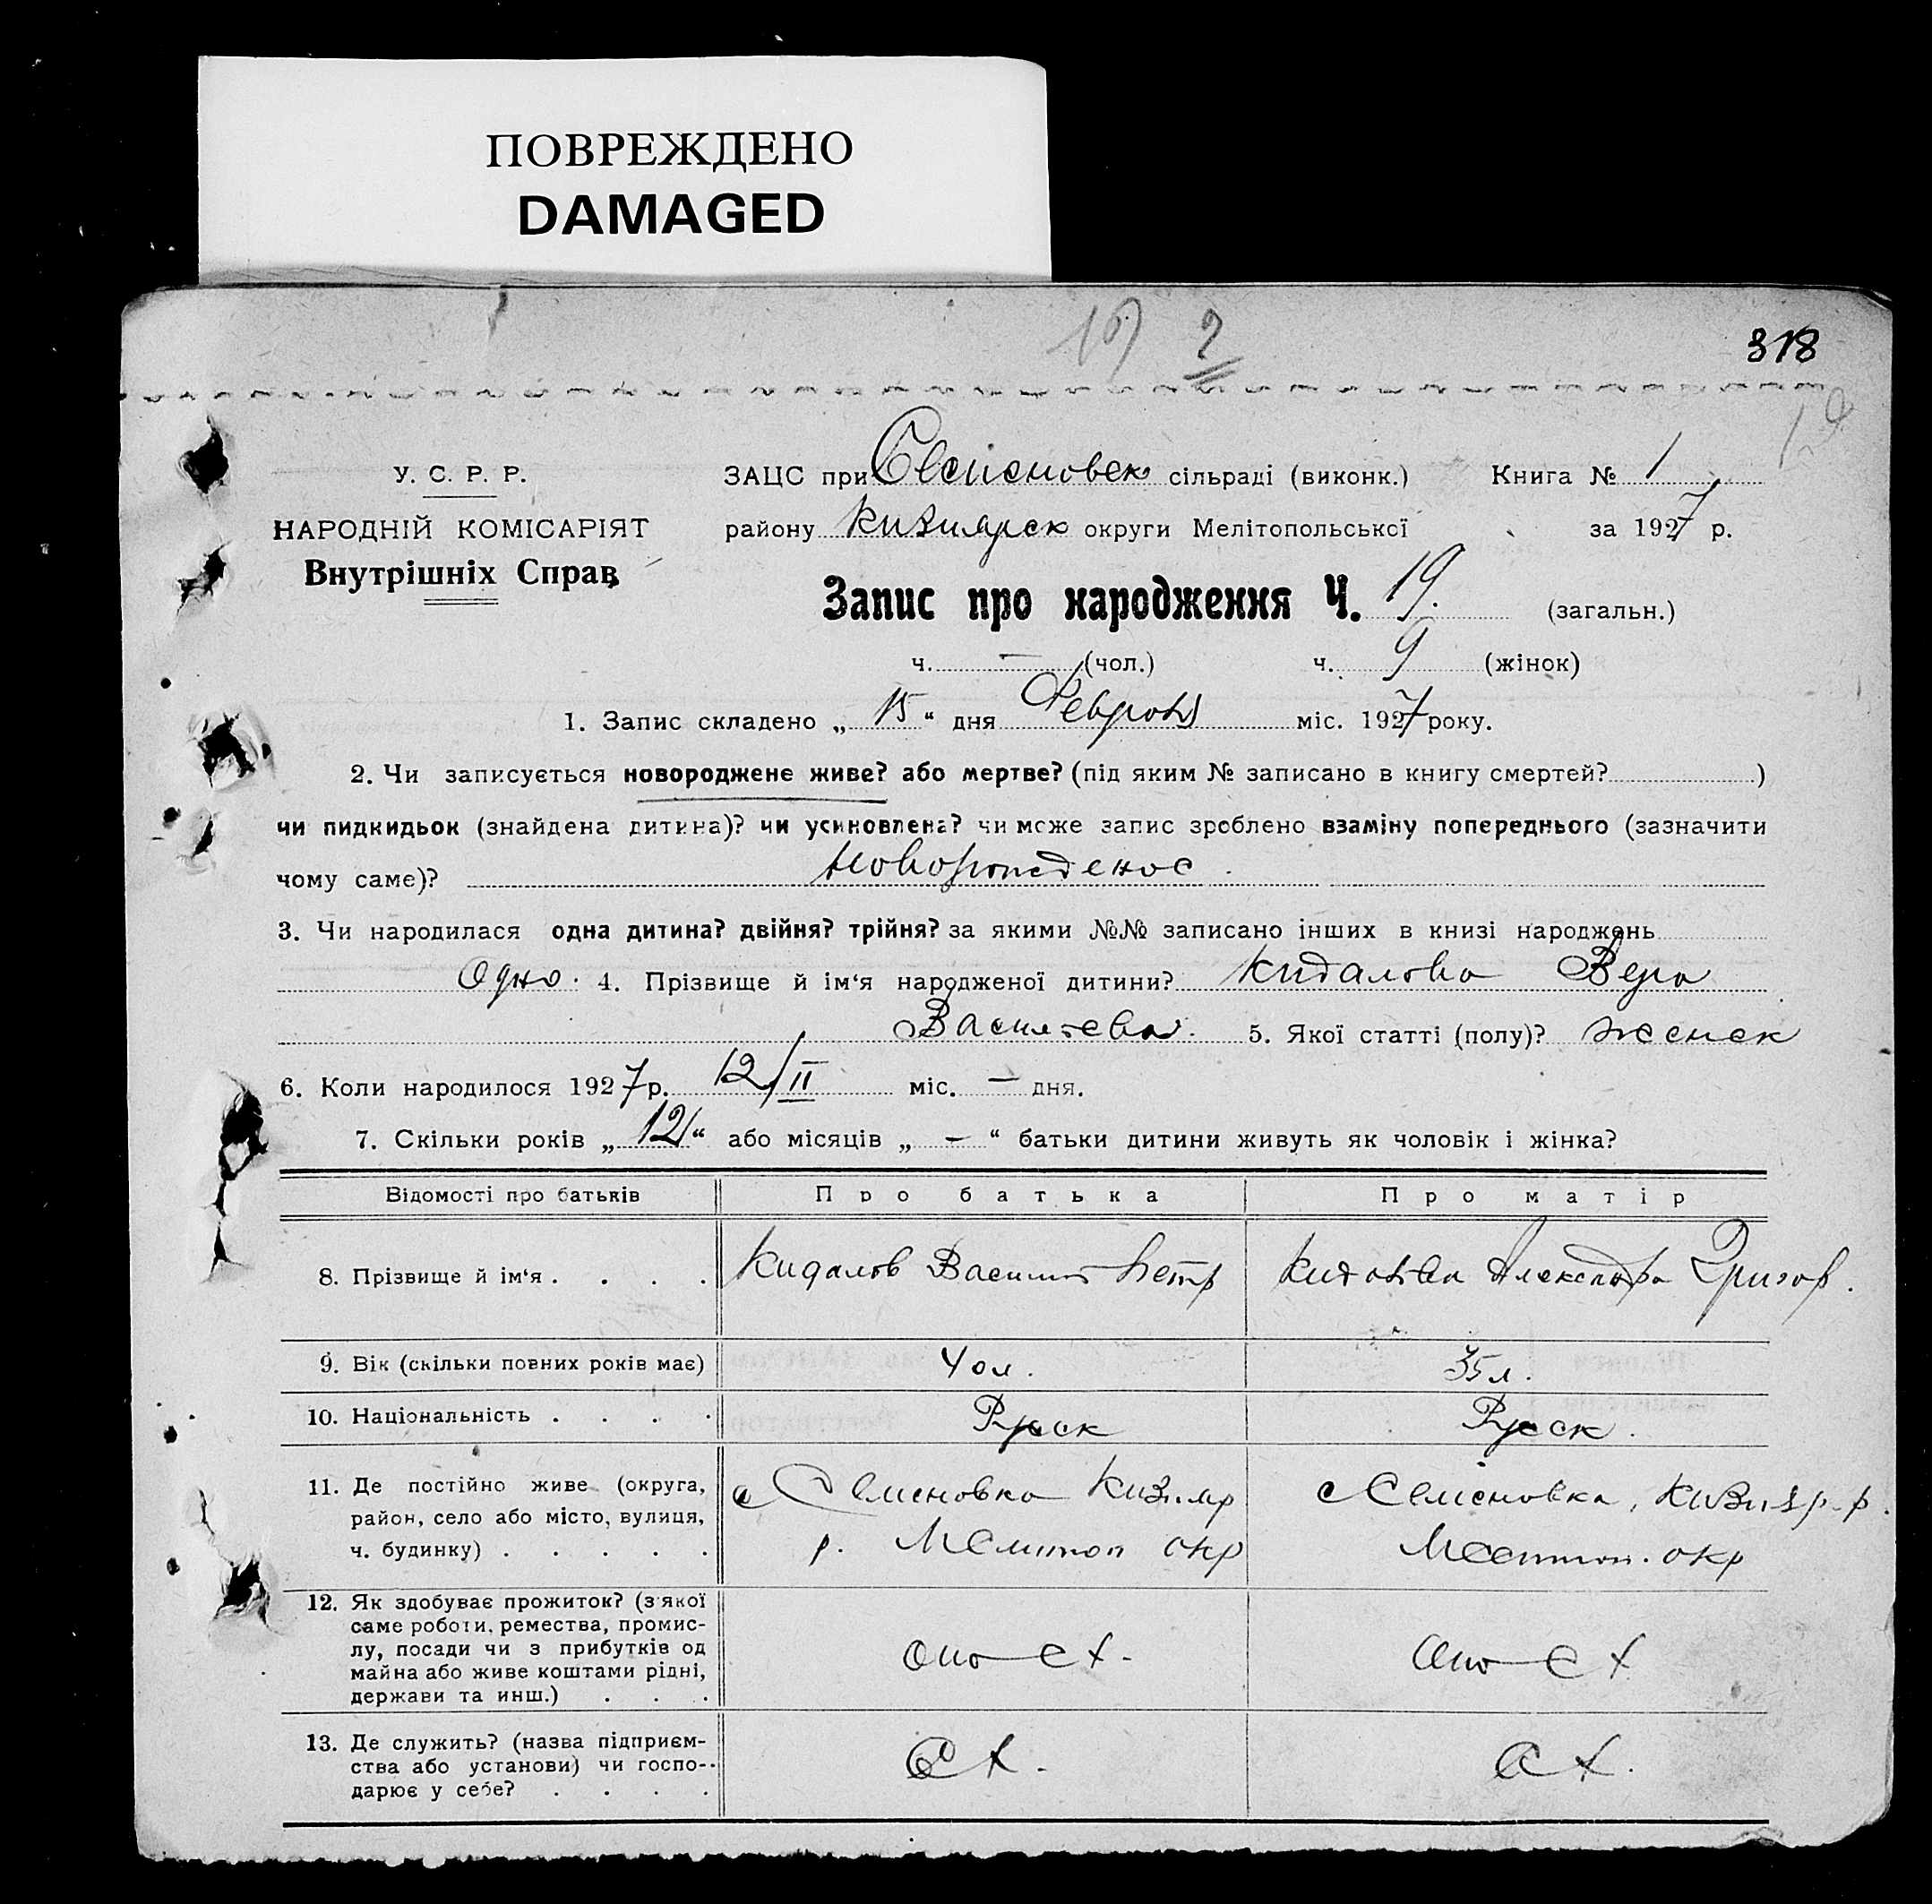 ПОВРЕЖДЕНО
DAMAGED
318
У. С. Р. Р.
НАРОДНІЙ КОМІСАРІЯТ
Внутрішніх Справ
ЗАЦС при Семеновск сільраді (виконк.) Книга № 1
району Кизиярск округи Мелітопольської за 1927 р.
Запис про народження Ч. 19. (загальн.)
ч. — (чол.) ч. 9 (жінок)
1. Запис складено „ 15 “ дня Февраля міс. 1927 року.
2. Чи записується новороджене живе? або мертве? (під яким № записано в книгу смертей? )
чи пидкидьок (знайдена дитина)? чи усиновлена? чи може запис зроблено взаміну попереднього (зазначити
чому саме)? Новорожденое
3. Чи народилася одна дитина? двійня? трійня? за якими №№ записано інших в книзі народжень
Одно. 4. Прізвище й ім‘я народженої дитини? Кидалова Вера
Васильева. 5. Якої статті (полу)? женск
6. Коли народилося 1927 р. 12/II міс. — дня.
7. Скільки років „ 12 “ або місяців „ — “ батьки дитини живуть як чоловік і жінка?
Відомості про батьків Про батька Про матір
8. Прізвище й ім‘я . . . . Кидалов Василий Петр Кидалова Александра Григор.
9. Вік (скільки повних років має) 40 л. 35 л.
10. Національність . . . . Русск Русск.
11. Де постійно живе (округа, район, село або місто, вулиця, ч. будинку) . . . . .
с Семеновка Кизияр
р. Мелитоп окр
с Семеновка, Кизияр. р.
Мелитоп. окр
12. Як здобуває прожиток? (з якої
саме роботи, ремества, промис-
лу, посади чи з прибутків од
майна або живе коштами рідні,
держави та инш.) . . .
13. Де служить? (назва підприєм-
ства або установи) чи госпо-
дарює у себе? . . . .
С Х. С Х.